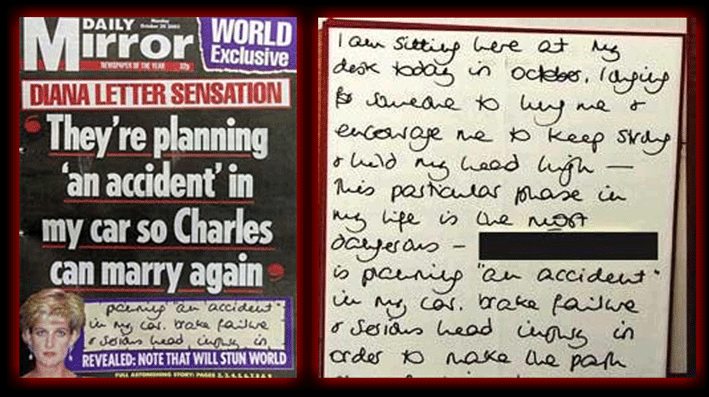 DAILY
Mirror
Monday
October 20 2003
NEWSPAPER OF THE YEAR
WORLD
Exclusive
DIANA LETTER SENSATION
‘They're planning
'an accident' in
my car so Charles
can marry again’
planning "an accident"
in my car. brake failure
& serious head injury in
REVEALED: NOTE THAT WILL STUN WORLD
FULL ASTONISHING STORY: PAGES
I am sitting here at my
desk today in october, longing
for someone to hug me &
encourage me to keep strong
& hold my head high —
This particular phase in
my life is the most
dangerous —
is planning "an accident"
in my car. brake failure
& serious head injury in
order to make the path